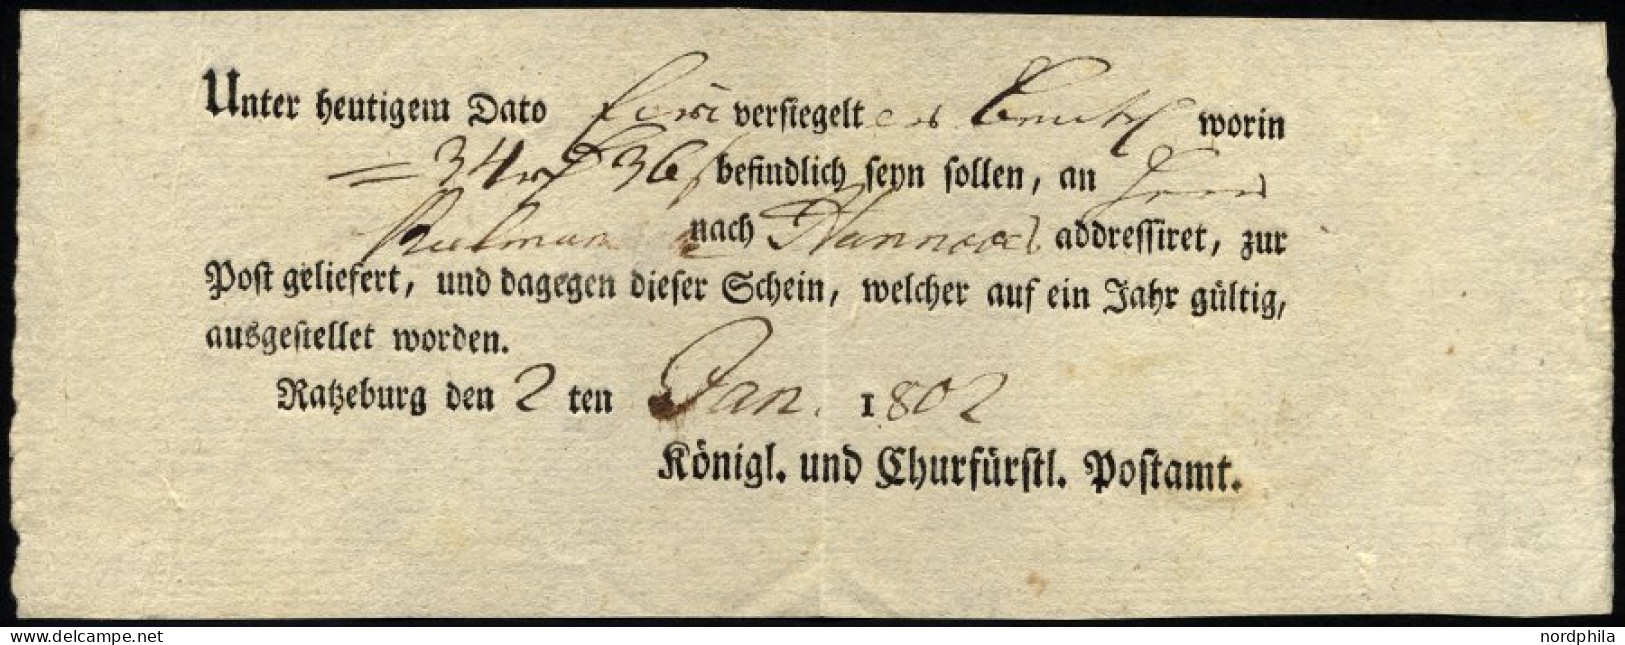 Unter heutigem Dato ein versiegeltes Beutel worin
= 34 rß 36 ß befindlich seyn sollen, an Herrn
nach Hannover addressiret, zur
Post geliefert, und dagegen dieser Schein, welcher auf ein Jahr gültig,
ausgestellet worden.
Ratzeburg den 2 ten Jan. 1802
Königl. und Churfürstl. Postamt.
www.delcampe.net
nordphila